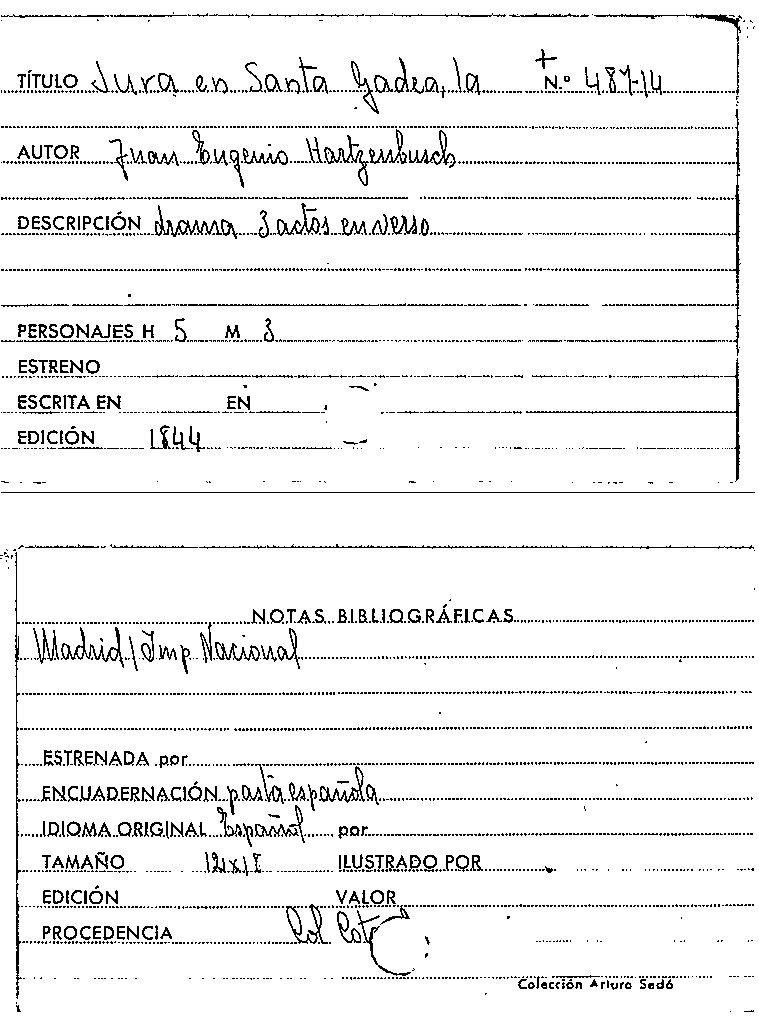 TÍTULO Jura en Santa Gadea, la + N.º 487-14
AUTOR Juan Eugenio Hartzenbusch
DESCRIPCIÓN drama 3 actos en verso
PERSONAJES H 5 M 3
ESTRENO
ESCRITA EN EN
EDICIÓN 1844
NOTAS BIBLIOGRÁFICAS
Madrid / Imp Nacional
ESTRENADA por
ENCUADERNACIÓN pasta española
IDIOMA ORIGINAL Español por
TAMAÑO ILUSTRADO POR
EDICIÓN VALOR
PROCEDENCIA Col
Colección Arturo Sedó